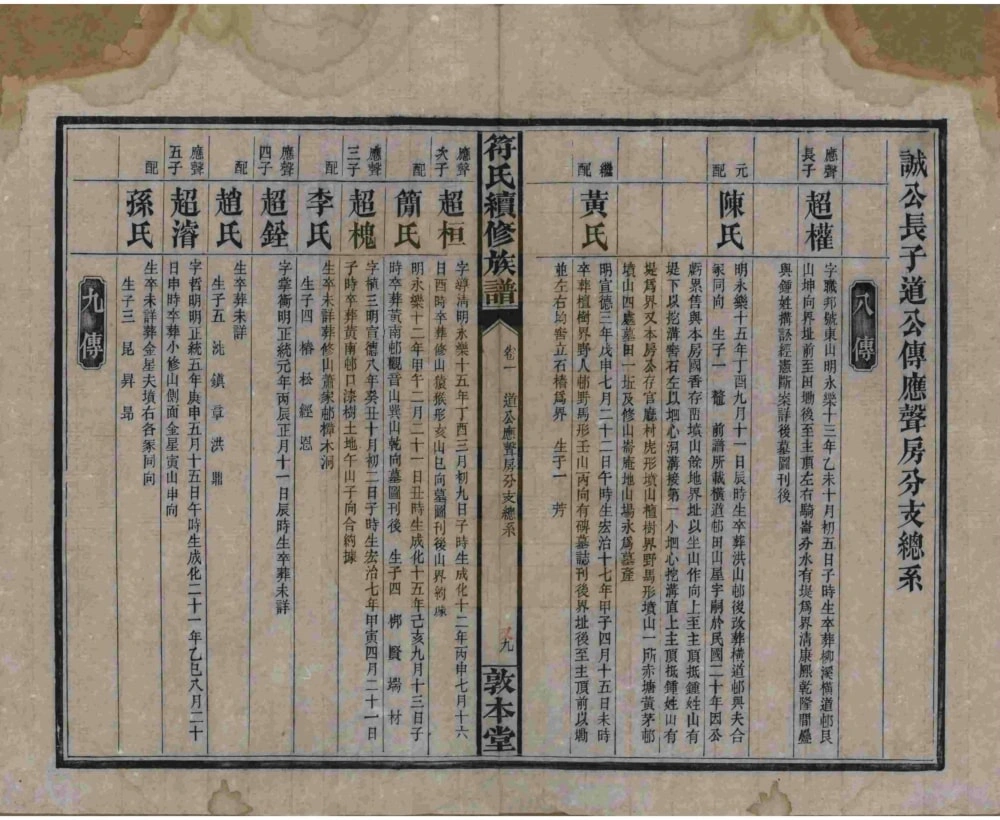 誠公長子道公傳應聲房分支總系
八傳
應聲長子
超權
字職邦號東山明永樂十三年乙未十月初五日子時生卒葬柳溪橫道邨艮
山坤向界址前至田塝後至主頂左右騎崙分水有堤爲界清康熙乾隆間疊
與鍾姓搆訟經憲斷案詳後墓圖刊後
元配
陳氏
明永樂十五年丁酉九月十一日辰時生卒葬洪山邨後改葬橫道邨與夫合
冢同向 生子一 鼇 前譜所載橫道邨田山屋宇嗣於民國二十年因公
虧累售與本房國香存留墳山餘地界址以坐山作向上至主頂抵鍾姓山有
堤下以挖溝窖石左以堋心洞溝接第一小堋心挖溝直上主頂抵鍾姓山有
堤爲界又本房公存官廳村虎形墳山植樹界野馬形墳山一所赤塘黃茅邨
墳山四處墓田一坵及修山崙庵地山場永爲墓產
繼配
黃氏
明宣德三年戊申七月二十二日午時生宏治十七年甲子四月十五日未時
卒葬植樹界野人邨野馬形壬山丙向有碑墓誌刊後界址後至主頂前以塝
並左右均窖立石樁爲界 生子一 芳
符氏續修族譜
卷一 道公應聲房分支總系
九
敦本堂
應聲次子
超桓
字尊清明永樂十五年丁酉三月初九日子時生成化十二年丙申七月十六
日酉時卒葬修山猿猴形亥山巳向墓圖刊後山界約據
配
簡氏
明永樂十二年甲午二月二十一日丑時生成化十五年己亥九月十三日子
時卒葬黃南邨觀音山巽山乾向墓圖刊後 生子四 梆 賢 瑞 材
應聲三子
超槐
字植三明宣德八年癸丑十月初二日子時生宏治七年甲寅四月二十一日
子時卒葬黃南邨口漆樹土地午山子向合約據
配
李氏
生卒未詳葬修山蕭家邨樟木洞
生子四 椿 松 經 恩
應聲四子
超銓
字掌衡明正統元年丙辰正月十一日辰時生卒葬未詳
配
趙氏
生卒葬未詳
生子五 沈 鎮 章 洪 鼎
應聲五子
超濬
字哲明明正統五年庚申五月十五日午時生成化二十一年乙巳八月二十
日申時卒葬小修山側面金星寅山申向
配
孫氏
生卒未詳葬金星夫墳右各冢同向
生子三 昆 昇 昂
九傳